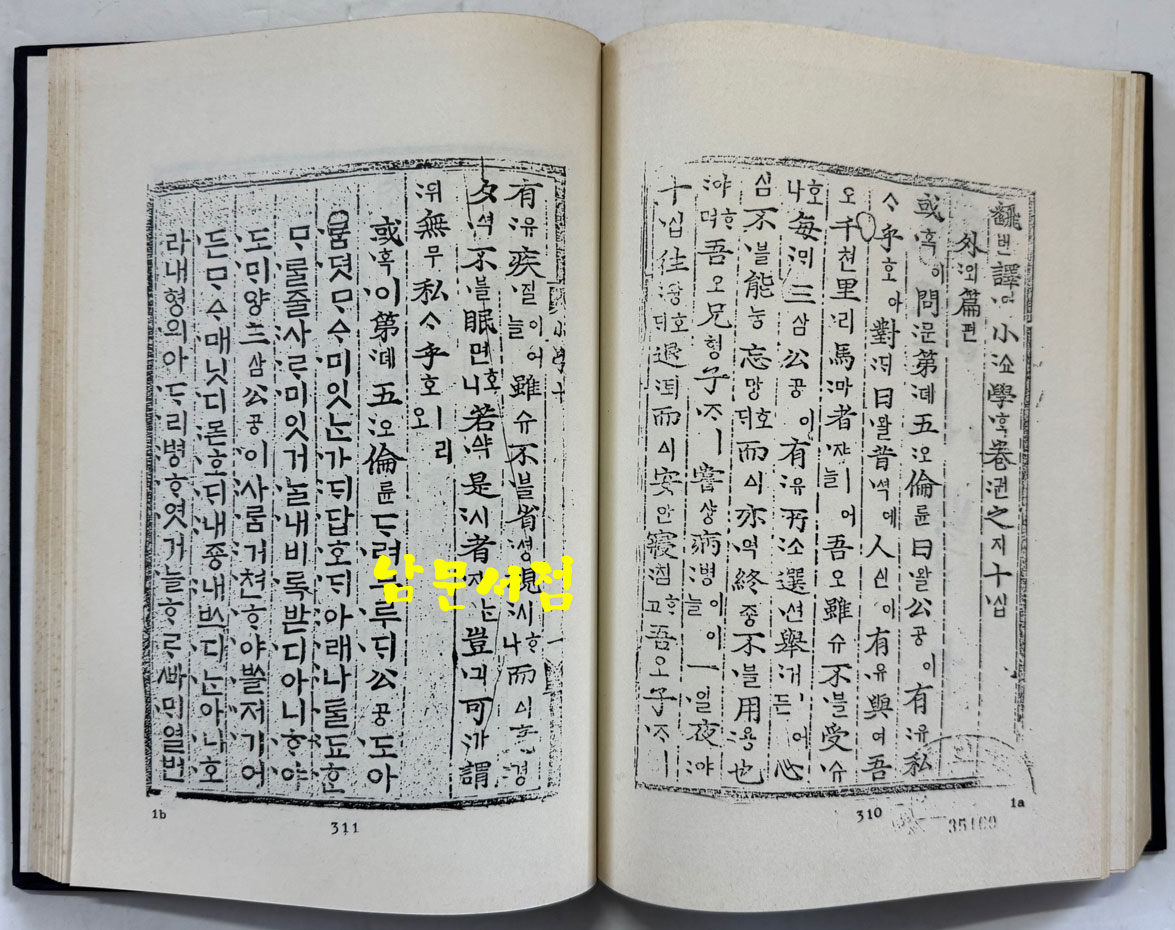 飜번譯역小쇼學ᄒᆞᆨ卷권之지十십
外외篇편
或혹이問문第뎨五오倫륜曰왈公공이有유私
ᄉᆞ乎호아對ᄃᆡ曰왈昔셕에人ᅀᅵᆫ이有유與여吾
오千쳔里리馬마者쟈ㅣ어늘吾오雖슈不블受슈
ᄒᆞ나每ᄆᆡ三삼公공이有유所소選션擧거ㅣ어든心
심不블能능忘망호ᄃᆡ而ᅀᅵ亦역終죵不블用용也
야ᄒᆞ며吾오兄형子ᄌᆞㅣ嘗샹病병이어늘一일夜야
十십往왕호ᄃᆡ退퇴而ᅀᅵ安안寢침ᄒᆞ고吾오子ᄌᆞㅣ
310
1a
有유疾질이어늘雖슈不블省셩視시ᄒᆞ나而ᅀᅵ경
夕셕不블眠면호니若약是시者쟈ᄂᆞᆫ豈긔可가謂
위無무私ᄉᆞ乎호ㅣ리오
或혹이第뎨五오倫륜ᄃᆞ려무루ᄃᆡ公공도아
ᄅᆞᆷ뎟ᄆᆞᅀᆞ미잇ᄂᆞᆫ가ᄃᆡ답호ᄃᆡ아래나ᄅᆞᆯ됴ᄒᆞᆫ
ᄆᆞᄅᆞᆯ줄사ᄅᆞ미잇거늘내비록받디아니ᄒᆞ야
도ᄆᆡ양三삼公공이사ᄅᆞᆷ거쳔ᄒᆞ야ᄡᅳᆯ저기어
든ᄆᆞᅀᆞ매닛디몯호ᄃᆡ내죵내ᄡᅳ디ᄂᆞᆫ아니호
라내형의아ᄃᆞ리병ᄒᆞ엿거늘ᄒᆞᄅᆞᆺ바ᄆᆡ열번
1b
311
남문서점